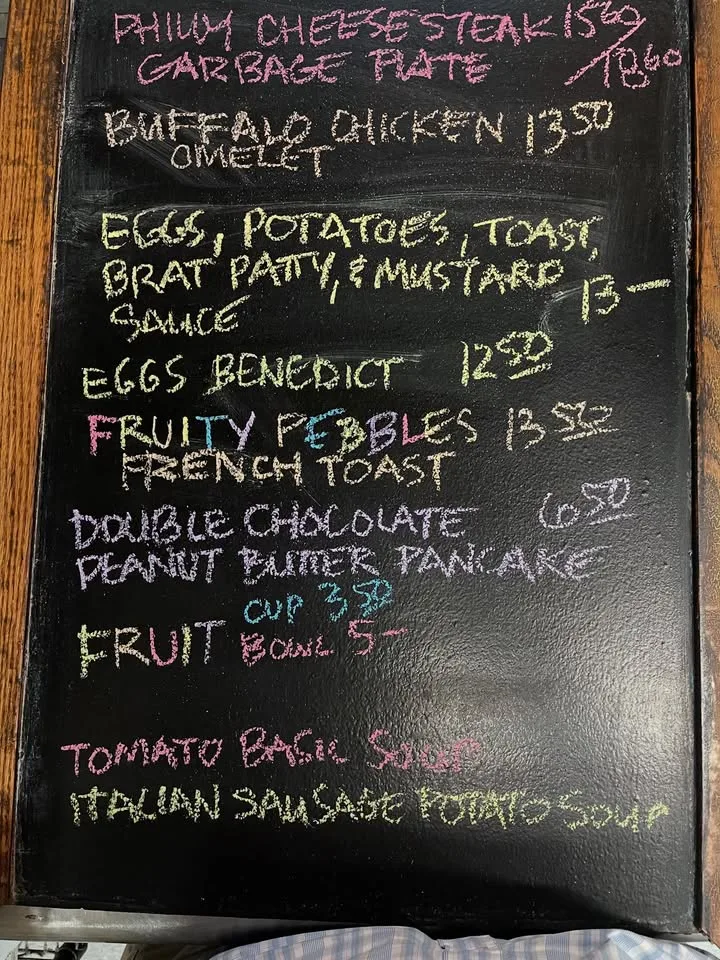 PHILLY CHEESESTEAK 15.60/18.60
GARBAGE PLATE
BUFFALO CHICKEN 13.50
OMELET
EGGS, POTATOES, TOAST,
BRAT PATTY, & MUSTARD
SAUCE 13-
EGGS BENEDICT 12.50
FRUITY PEBBLES 13.50
FRENCH TOAST
DOUBLE CHOCOLATE 6.50
PEANUT BUTTER PANCAKE
CUP 3.50
FRUIT BOWL 5-
TOMATO BASIL SOUP
ITALIAN SAUSAGE POTATO SOUP